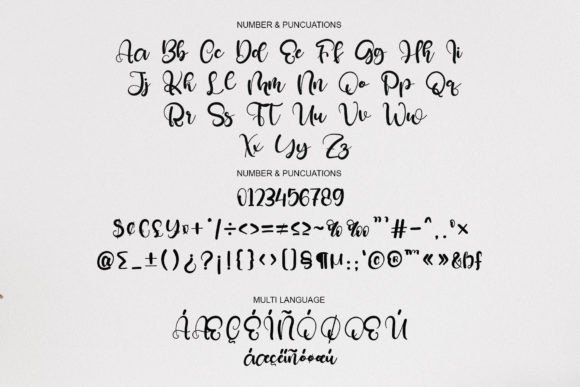 NUMBER & PUNCUATIONS
Aa Bb Cc Dd Ee Ff Gg Hh Ii
Jj Kk Ll Mm Nn Oo Pp Qq
Rr Ss Tt Uu Vv Ww
Xx Yy Zz
NUMBER & PUNCUATIONS
0123456789
$¢£ + /÷<>=≠≤≥~%‰ #-^ ×
@Σ_±()¿?¡!{}‹›[]§¶µ:;'©®™«»&
MULTI LANGUAGE
ÁÆÇÉÍÑÓØŒÚ
áæçéíñóøœú